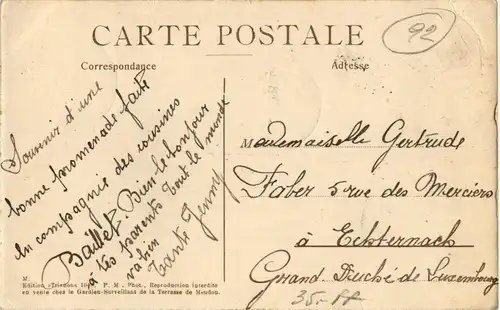 CARTE POSTALE
92
Correspondance
Adresse
Souvenir d'une
bonne promenade faite
en compagnie des cousines
Baillet. Bien le bonjour
à tes parents tout le monde
va bien
Tante Jenny
Mademoiselle Gertrude
Faber 5 rue des Merciers
à Echternach
Grand Duché de Luxembourg
35-
M.
Edition P. M. Phot., Reproduction interdite
en vente chez le Gardien-Surveillant de la Terrasse de Meudon.